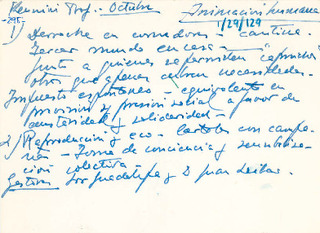 Reunión Prof. - Octubre Animación humana
-295- 1/29/129
1) Derroche en comedores - cantina.
Tercer mundo en casa -
junto a quienes se permiten "caprichos"
otros que apenas cubren necesidades.
Impuesto espontáneo - equivalente en
provisión y presión social a favor de
austeridad y solidaridad -
2) Reproducción y eco - carteles con campa-
ña - Toma de conciencia y sensibiliza-
ción colectiva -
Gestión Sor Guadalupe y D Juan